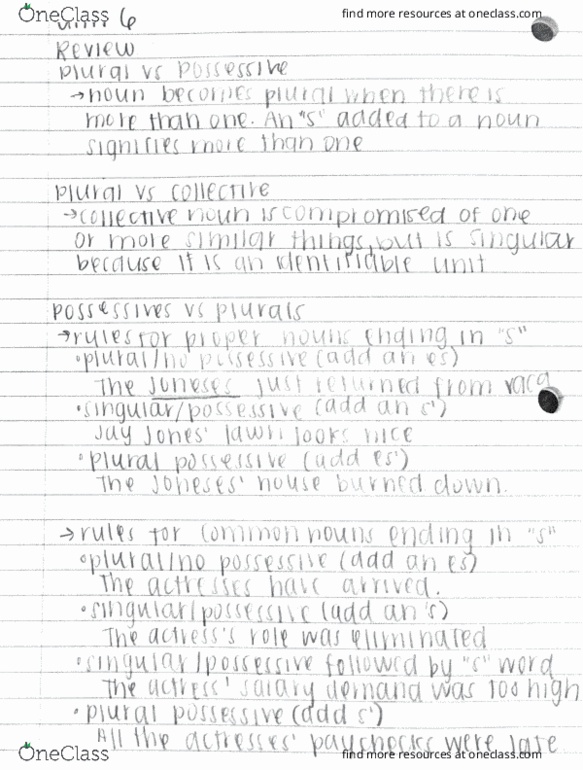 OneClass
find more resources at oneclass.com
6
Review
plural vs possessive
→noun becomes plural when there is
more than one. An "s" added to a noun
signifies more than one
plural vs collective
→collective noun is compromised of one
or more similar things, but is singular
because it is an identifiable unit
possessives vs plurals
→rules for proper nouns ending in "s"
•plural/no possessive (add an es)
The Joneses just returned from vaca
•singular/possessive (add an s')
Jay Jones' lawn looks nice
•plural possessive (add es')
The Joneses' house burned down.
→rules for common nouns ending in "s"
•plural/no possessive (add an es)
The actresses have arrived.
•singular/possessive (add an 's)
The actress's role was eliminated
•singular/possessive followed by "s" word
The actress' salary demand was too high
•plural possessive (add s')
All the actresses' paychecks were late
OneClass
find more resources at oneclass.com